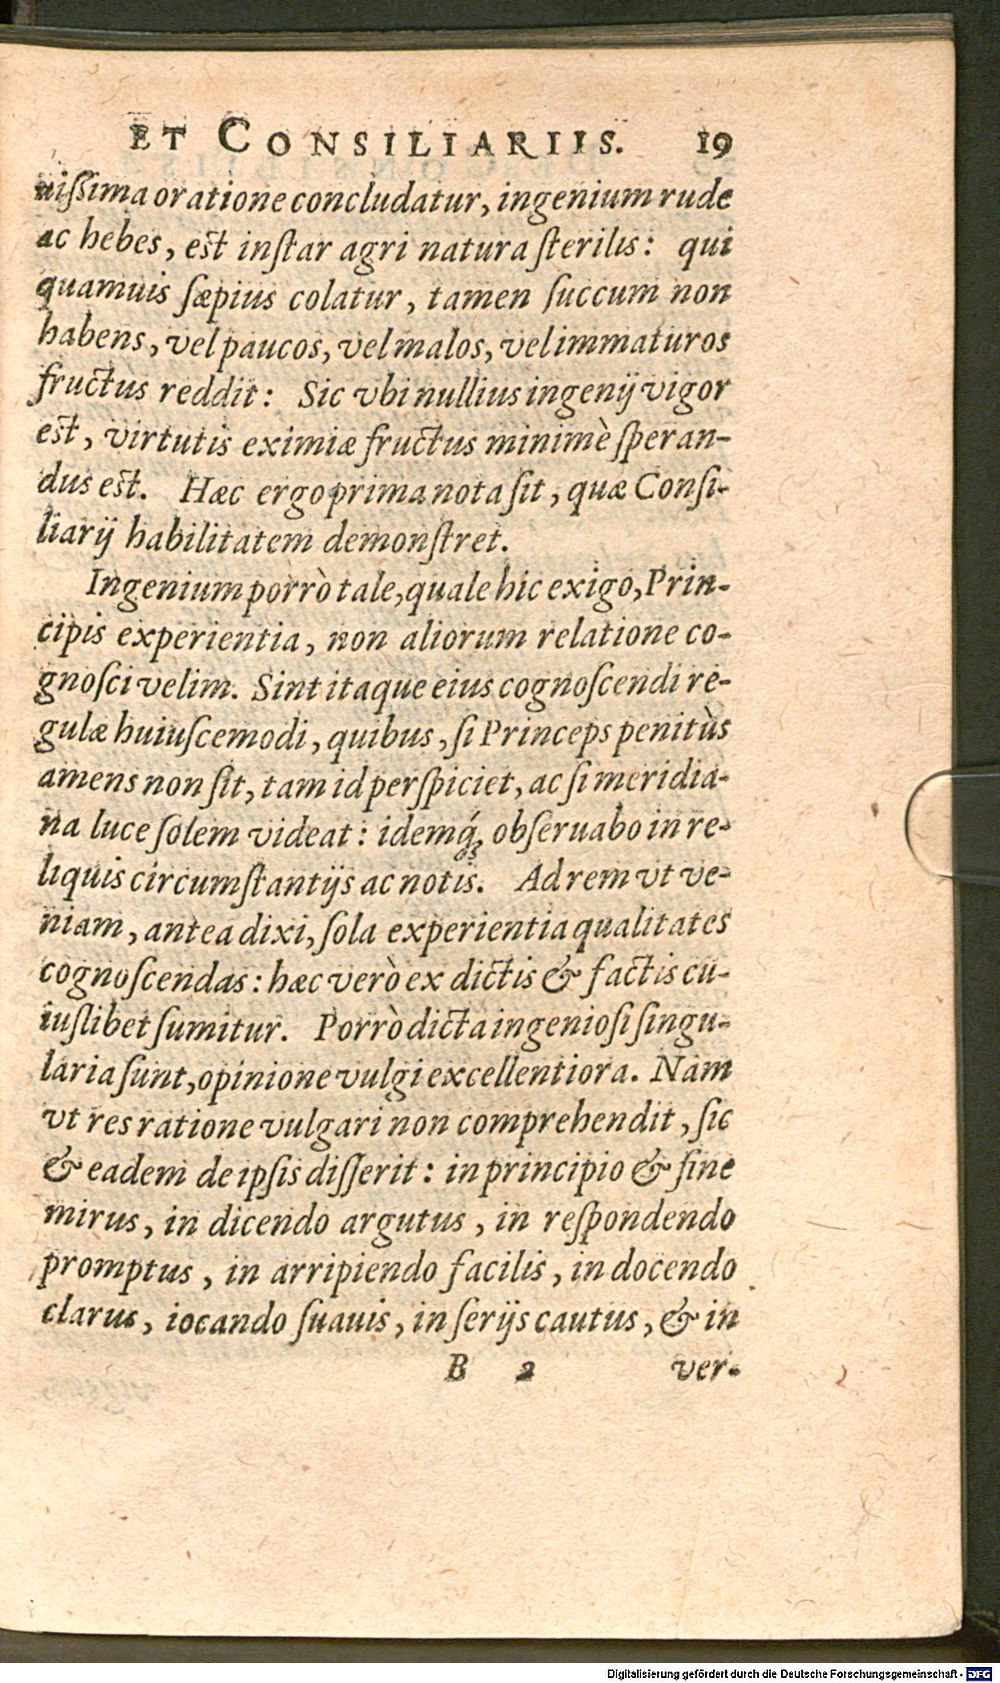 ET CONSILIARIIS. 19
uiſſima oratione concludatur, ingenium rude
ac hebes, est inſtar agri natura ſterilis: qui
quamuis ſæpius colatur, tamen ſuccum non
habens, vel paucos, vel malos, vel immaturos
fructus reddit: Sic vbi nullius ingenij vigor
est, virtutis eximiæ fructus minimè ſperan-
dus est. Hæc ergo prima nota ſit, quæ Conſi-
liarij habilitatem demonſtret.
Ingenium porrò tale, quale hic exigo, Prin-
cipis experientia, non aliorum relatione co-
gnoſci velim. Sint itaque eius cognoſcendi re-
gulæ huiuſcemodi, quibus, ſi Princeps penitùs
amens non ſit, tam id perſpiciet, ac ſi meridia-
na luce ſolem videat: idemq́; obſeruabo in re-
liquis circumſtantijs ac notis. Ad rem vt ve-
niam, antea dixi, ſola experientia qualitates
cognoſcendas: hæc verò ex dictis & factis cu-
iuſlibet ſumitur. Porrò dicta ingenioſi ſingu-
laria ſunt, opinione vulgi excellentiora. Nam
vt res ratione vulgari non comprehendit, ſic
& eadem de ipſis diſſerit: in principio & fine
mirus, in dicendo argutus, in reſpondendo
promptus, in arripiendo facilis, in docendo
clarus, iocando ſuauis, in ſerijs cautus, & in
B 2 ver-
Digitalisierung gefördert durch die Deutsche Forschungsgemeinschaft - DFG